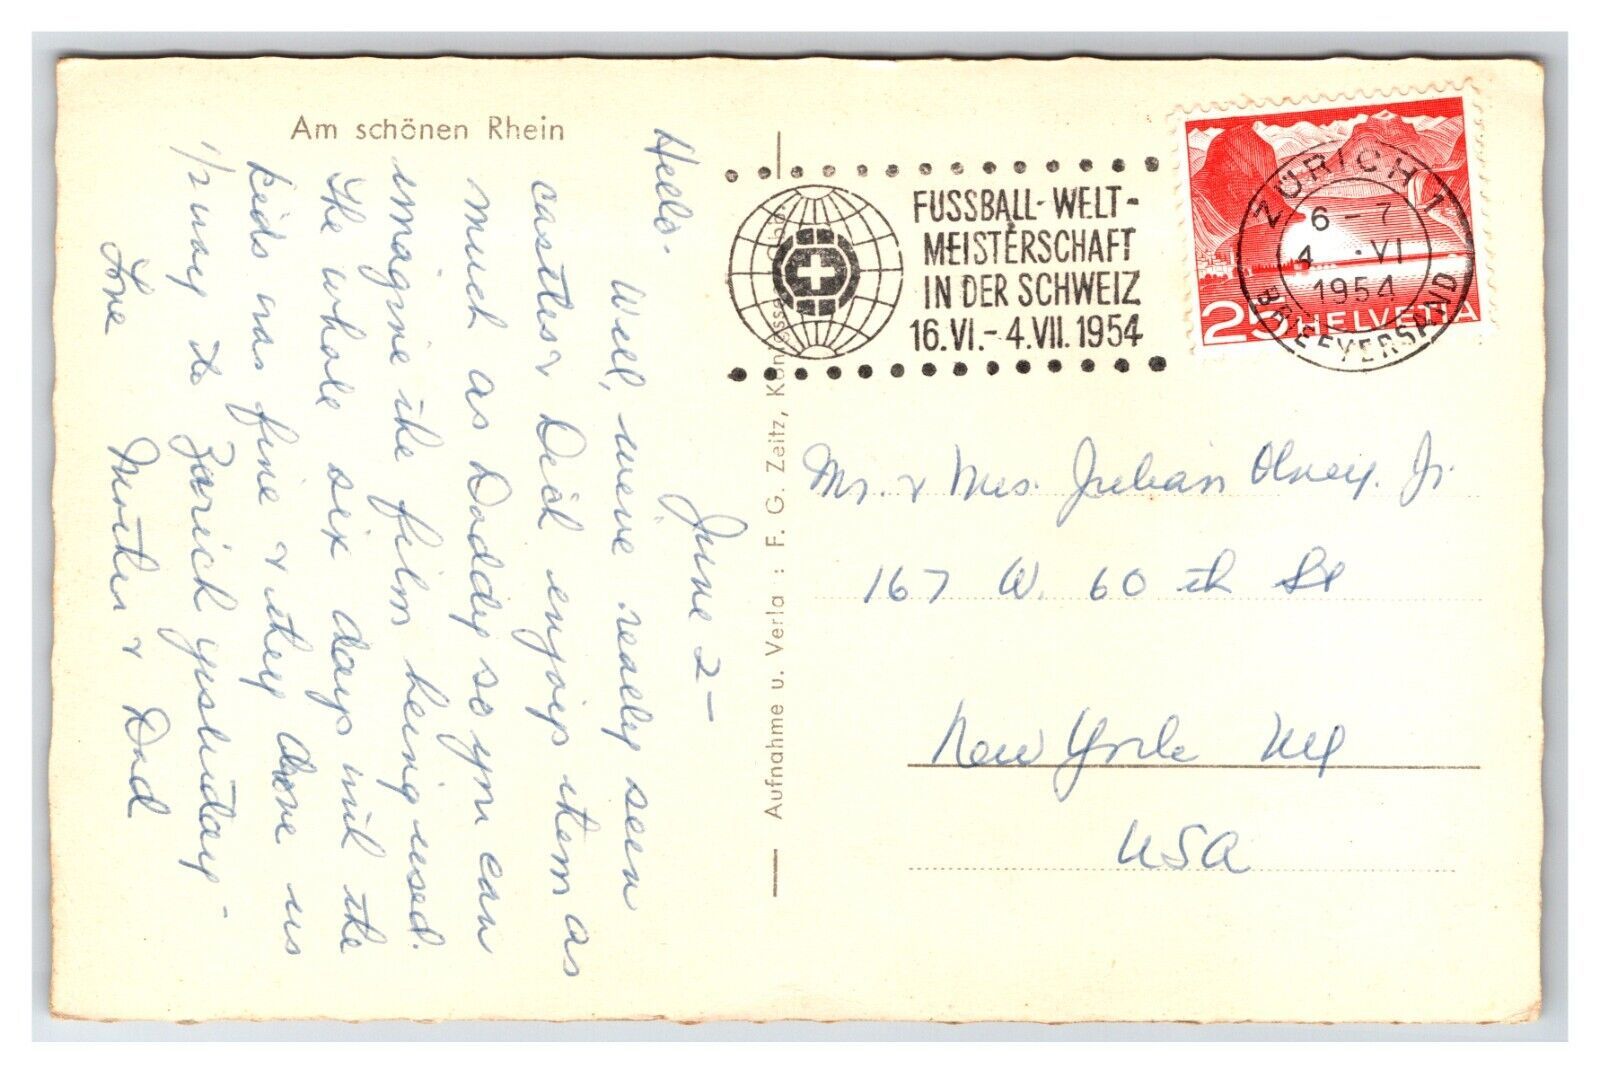 Am schönen Rhein
Hello.
June 2-
Well, we've really seen
castles & Dick enjoys them as
much as Daddy so you can
imagine the film being used.
The whole six days with the
kids was fine & they drove us
1/2 way to Zurich yesterday-
Love
Mother & Dad
Aufnahme u. Verlag : F. G. Zeitz, Königssee
FUSSBALL-WELT-
MEISTERSCHAFT
IN DER SCHWEIZ
16.VI.-4.VII. 1954
ZÜRICH 1
6-7
4.VI
1954
BRIEFVERSAND
25 HELVETIA
Mr. & Mrs. Julian Olney. Jr.
167 W. 60 th St
New York NY
USA